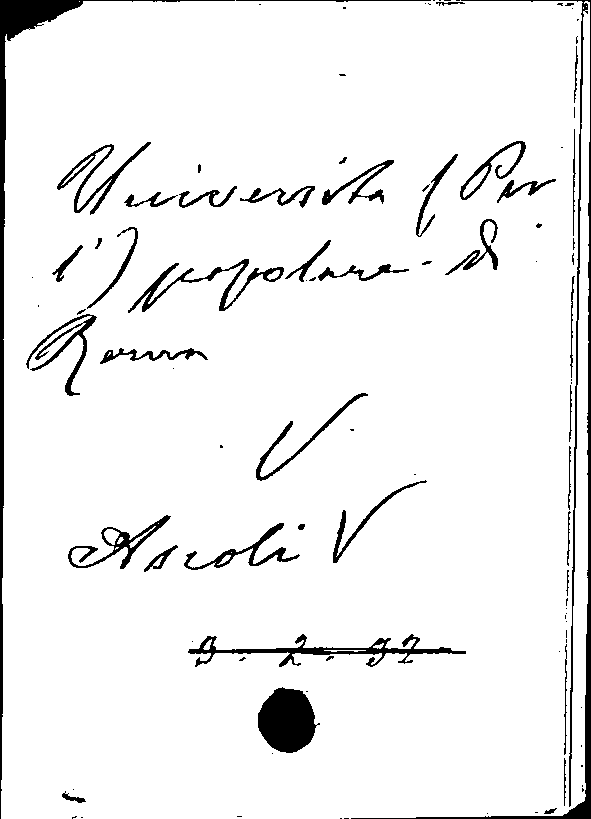 Università (Per
l') popolare di
Roma
V
Ascoli V